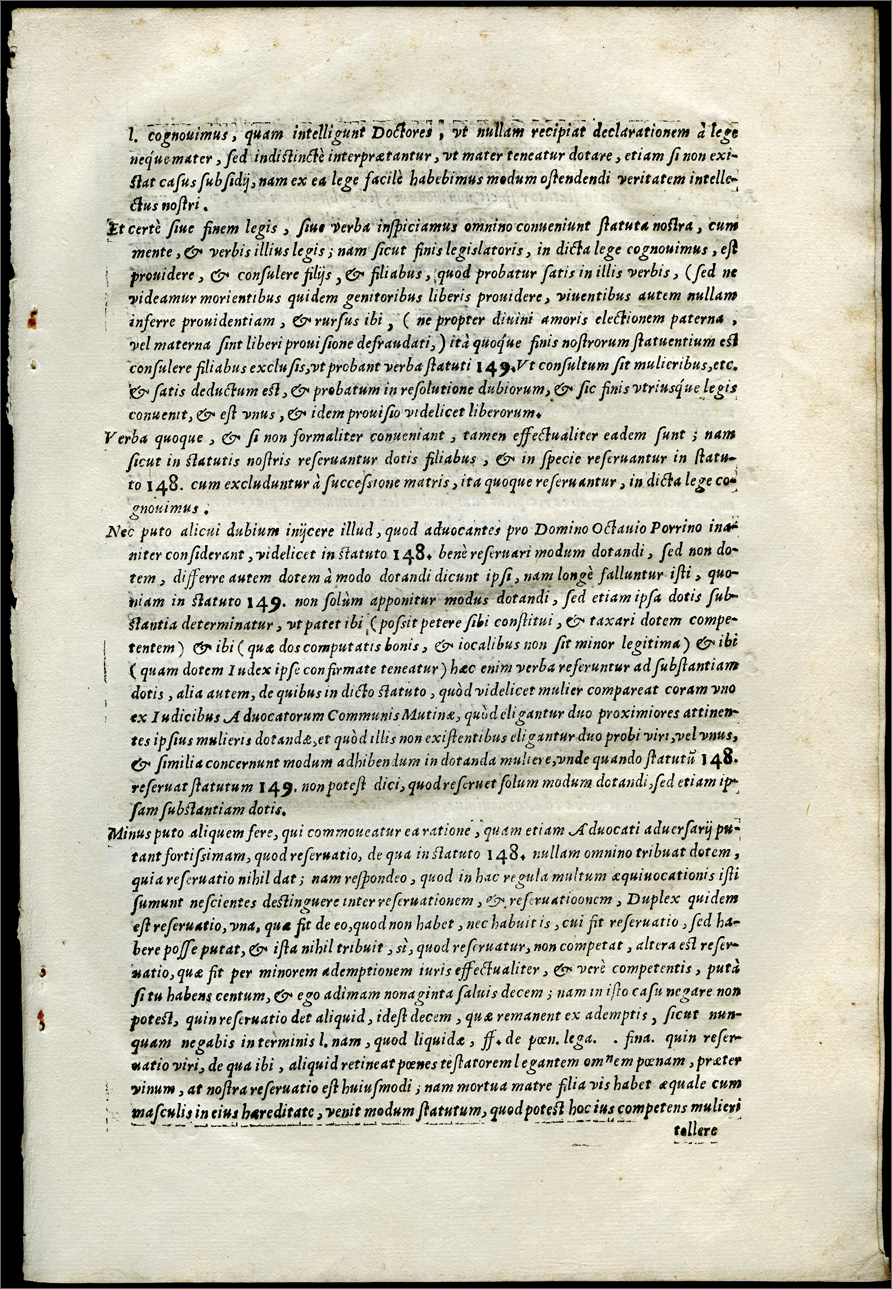 l. cognouimus, quam intelligunt Doctores, vt nullam recipiat declarationem à lege
neque mater, sed indistinctè interprætantur, vt mater teneatur dotare, etiam si non exi-
stat casus subsidij, nam ex ea lege facilè habebimus modum ostendendi veritatem intelle-
ctus nostri.
Et certè siue finem legis, siue verba inspiciamus omnino conueniunt statuta nostra, cum
mente, & verbis illius legis; nam sicut finis legislatoris, in dicta lege cognouimus, est
prouidere, & consulere filijs, & filiabus, quod probatur satis in illis verbis, (sed ne
videamur morientibus quidem genitoribus liberis prouidere, viuentibus autem nullam
inferre prouidentiam, & rursus ibi, (ne propter diuini amoris electionem paterna,
vel materna sint liberi prouisione defraudati,) ità quoque finis nostrorum statuentium est
consulere filiabus exclusis, vt probant verba statuti 149. Vt consultum sit mulieribus, etc.
& satis deductum est, & probatum in resolutione dubiorum, & sic finis vtriusq́ue legis
conuenit, & est vnus, & idem prouisio videlicet liberorum.
Verba quoque, & si non formaliter conueniant, tamen effectualiter eadem sunt; nam
sicut in statutis nostris reseruantur dotis filiabus, & in specie reseruantur in statu-
to 148. cum excluduntur à successione matris, ita quoque reseruantur, in dicta lege co-
gnouimus.
Nec puto alicui dubium inijcere illud, quod aduocantes pro Domino Octauio Porrino ina-
niter considerant, videlicet in statuto 148. benè reseruari modum dotandi, sed non do-
tem, differre autem dotem à modo dotandi dicunt ipsi, nam longè falluntur isti, quo-
niam in statuto 149. non solùm apponitur modus dotandi, sed etiam ipsa dotis sub-
stantia determinatur, vt patet ibi (possit petere sibi constitui, & taxari dotem compe-
tentem) & ibi (quæ dos computatis bonis, & iocalibus non sit minor legitima) & ibi
(quam dotem Iudex ipse confirmate teneatur) hæc enim verba referuntur ad substantiam
dotis, alia autem, de quibus in dicto statuto, quòd videlicet mulier compareat coram vno
ex Iudicibus Aduocatorum Communis Mutinæ, quòd eligantur duo proximiores attinen-
tes ipsius mulieris dotandæ, et quòd illis non existentibus eligantur duo probi viri, vel vnus,
& similia concernunt modum adhibendum in dotanda muliere, vnde quando statutũ 148.
reseruat statutum 149. non potest dici, quod reseruet solum modum dotandi, sed etiam ip-
sam substantiam dotis.
Minus puto aliquem fere, qui commoueatur ea ratione, quam etiam Aduocati aduersarij pu-
tant fortissimam, quod reseruatio, de qua in statuto 148. nullam omnino tribuat dotem,
quia reseruatio nihil dat; nam respondeo, quod in hac regula multum æquiuocationis isti
sumunt nescientes destinguere inter reseruationem, & reseruatioonem, Duplex quidem
est reseruatio, vna, quæ fit de eo, quod non habet, nec habuit is, cui fit reseruatio, sed ha-
bere posse putat, & ista nihil tribuit, sì, quod reseruatur, non competat, altera est reser-
uatio, quæ fit per minorem ademptionem iuris effectualiter, & verè competentis, putà
si tu habens centum, & ego adimam nonaginta saluis decem; nam in isto casu negare non
potest, quin reseruatio det aliquid, idest decem, quæ remanent ex ademptis, sicut nun-
quam negabis in terminis l. nam, quod liquidæ, ff. de pœn. lega. . fina. quin reser-
uatio viri, de qua ibi, aliquid retineat pœnes testatorem legantem omnem pœnam, præter
vinum, at nostra reseruatio est huiusmodi; nam mortua matre filia vis habet æquale cum
masculis in eius hæreditate, venit modum statutum, quod potest hoc ius competens mulieri
tollere